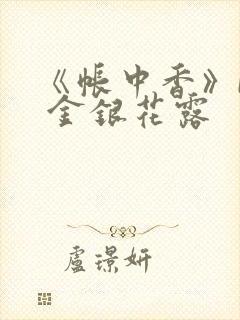 《帳中香》
金銀花露
盧璟妍